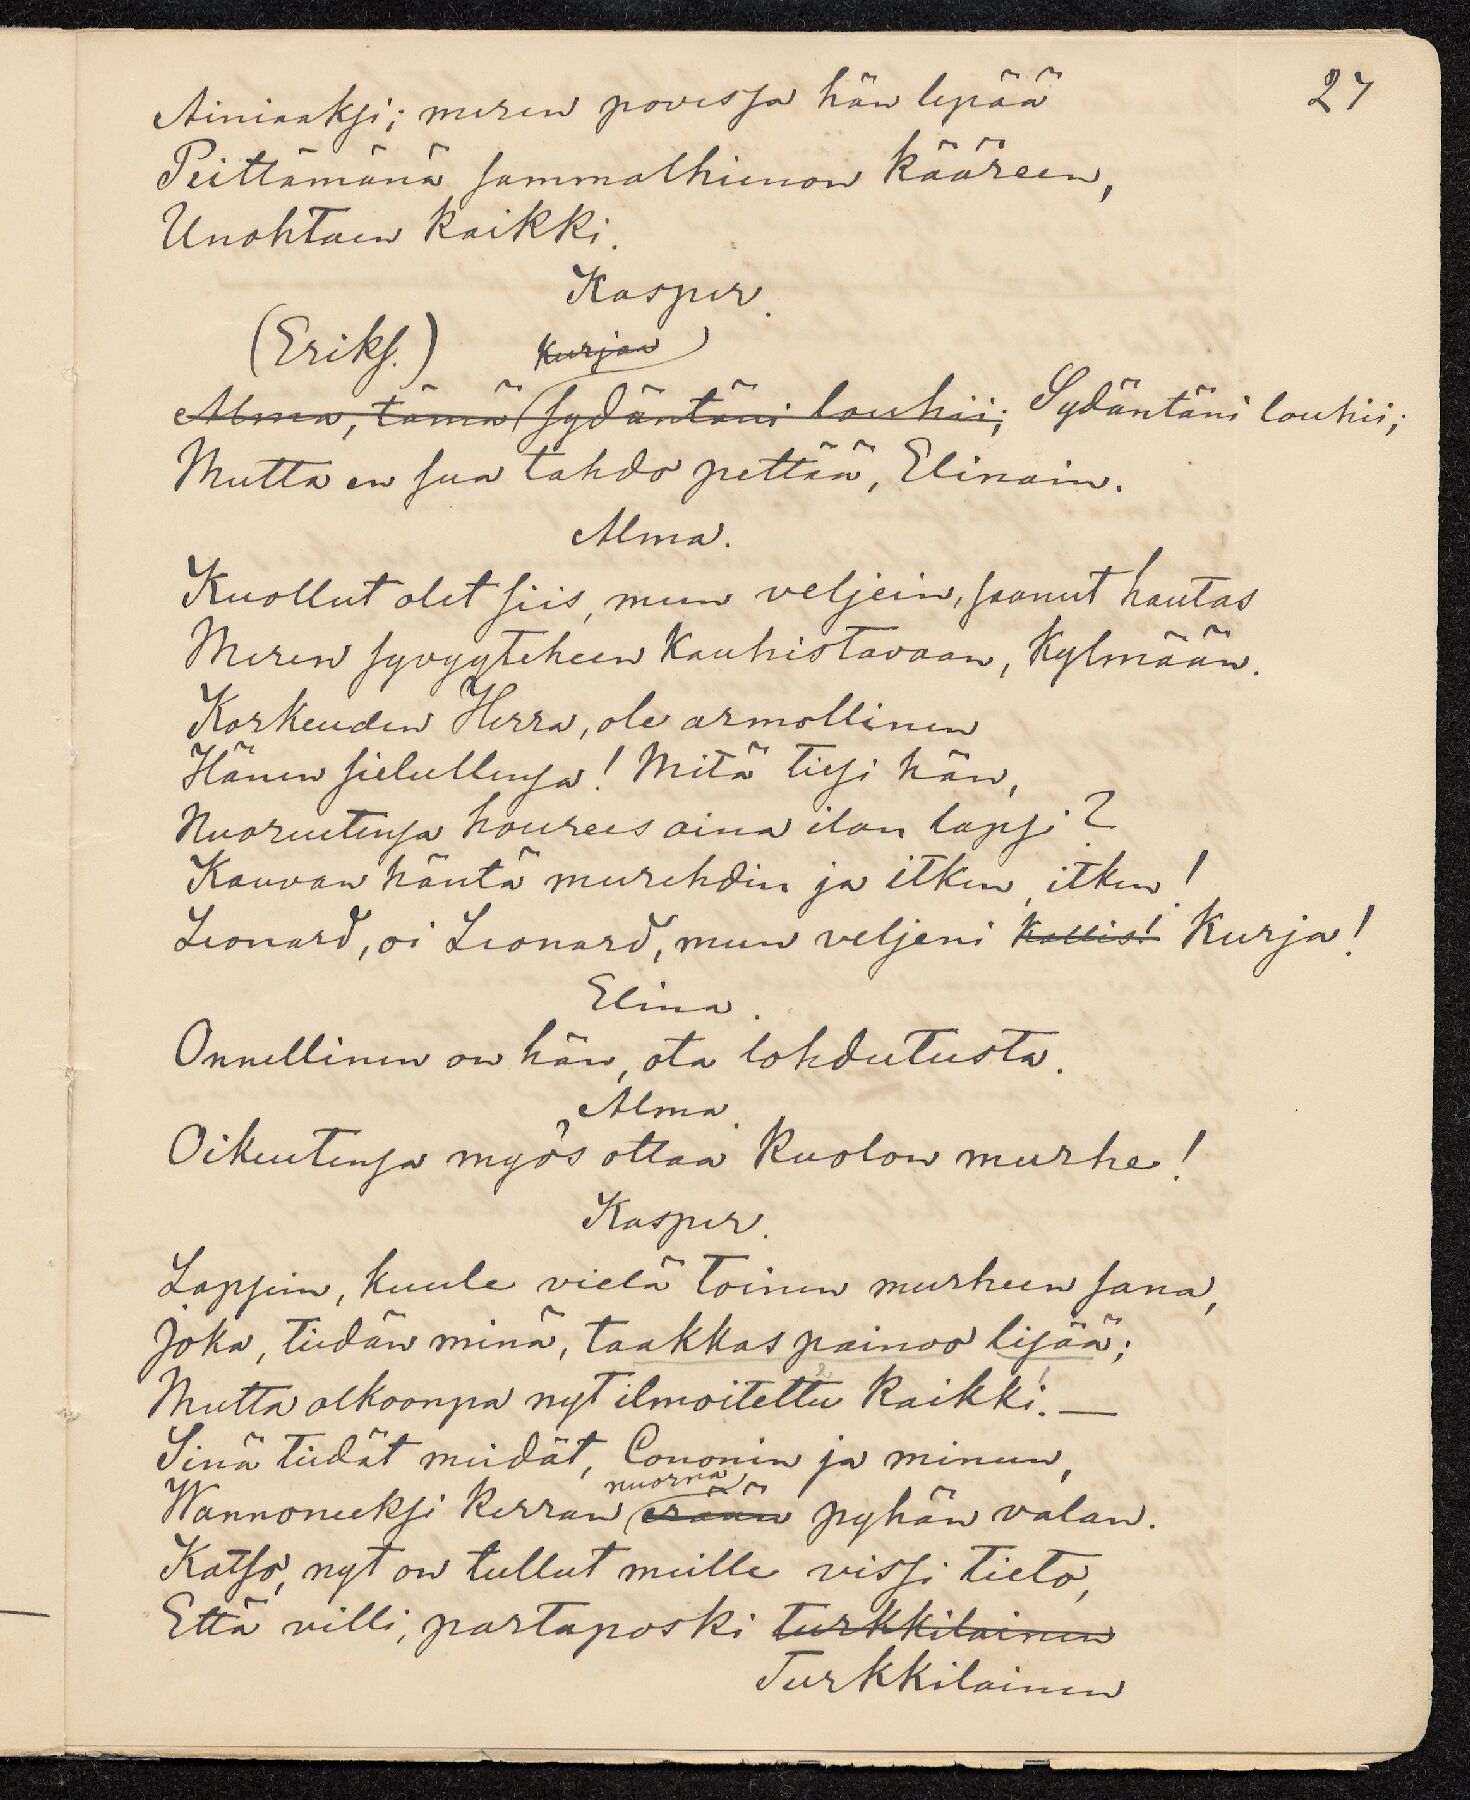 27
Ainiaaksi; meren povessa hän lepää
Peittämänä sammalhienon kääreen,
Unohtaen kaikki.
Kasper.
(Eriks.) kurjan
Alma, tämä sydäntäni louhii; Sydäntäni louhii;
Mutta en sua tahdo pettää, Elinain.
Alma.
Kuollut olet siis, mun veljein, saanut hautas
Meren syvyyteheen kauhistavaan, kylmään.
Korkeuden Herra, ole armollinen
Hänen sielullensa! Mitä tiesi hän,
Nuoruutensa houreis aina ilon lapsi?
Kauvan häntä murehdin ja itken, itken!
Leonard, oi Leonard, mun veljeni kallis! kurja!
Elina.
Onnellinen on hän, ota lohdutusta.
Alma.
Oikeutensa myös ottaa kuolon murhe!
Kasper.
Lapsein, kuule vielä toinen murheen sana,
Joka, tiedän minä, taakkas painoo lisää;
Mutta olkoonpa nyt ilmoitettu kaikki! —
Sinä tiedät meidät, Cononin ja minun,
nuorna
Wannoneeksi kerran erään pyhän valan.
Katso, nyt on tullut meille vissi tieto,
Että villi, partaposki turkkilainen
Turkkilainen